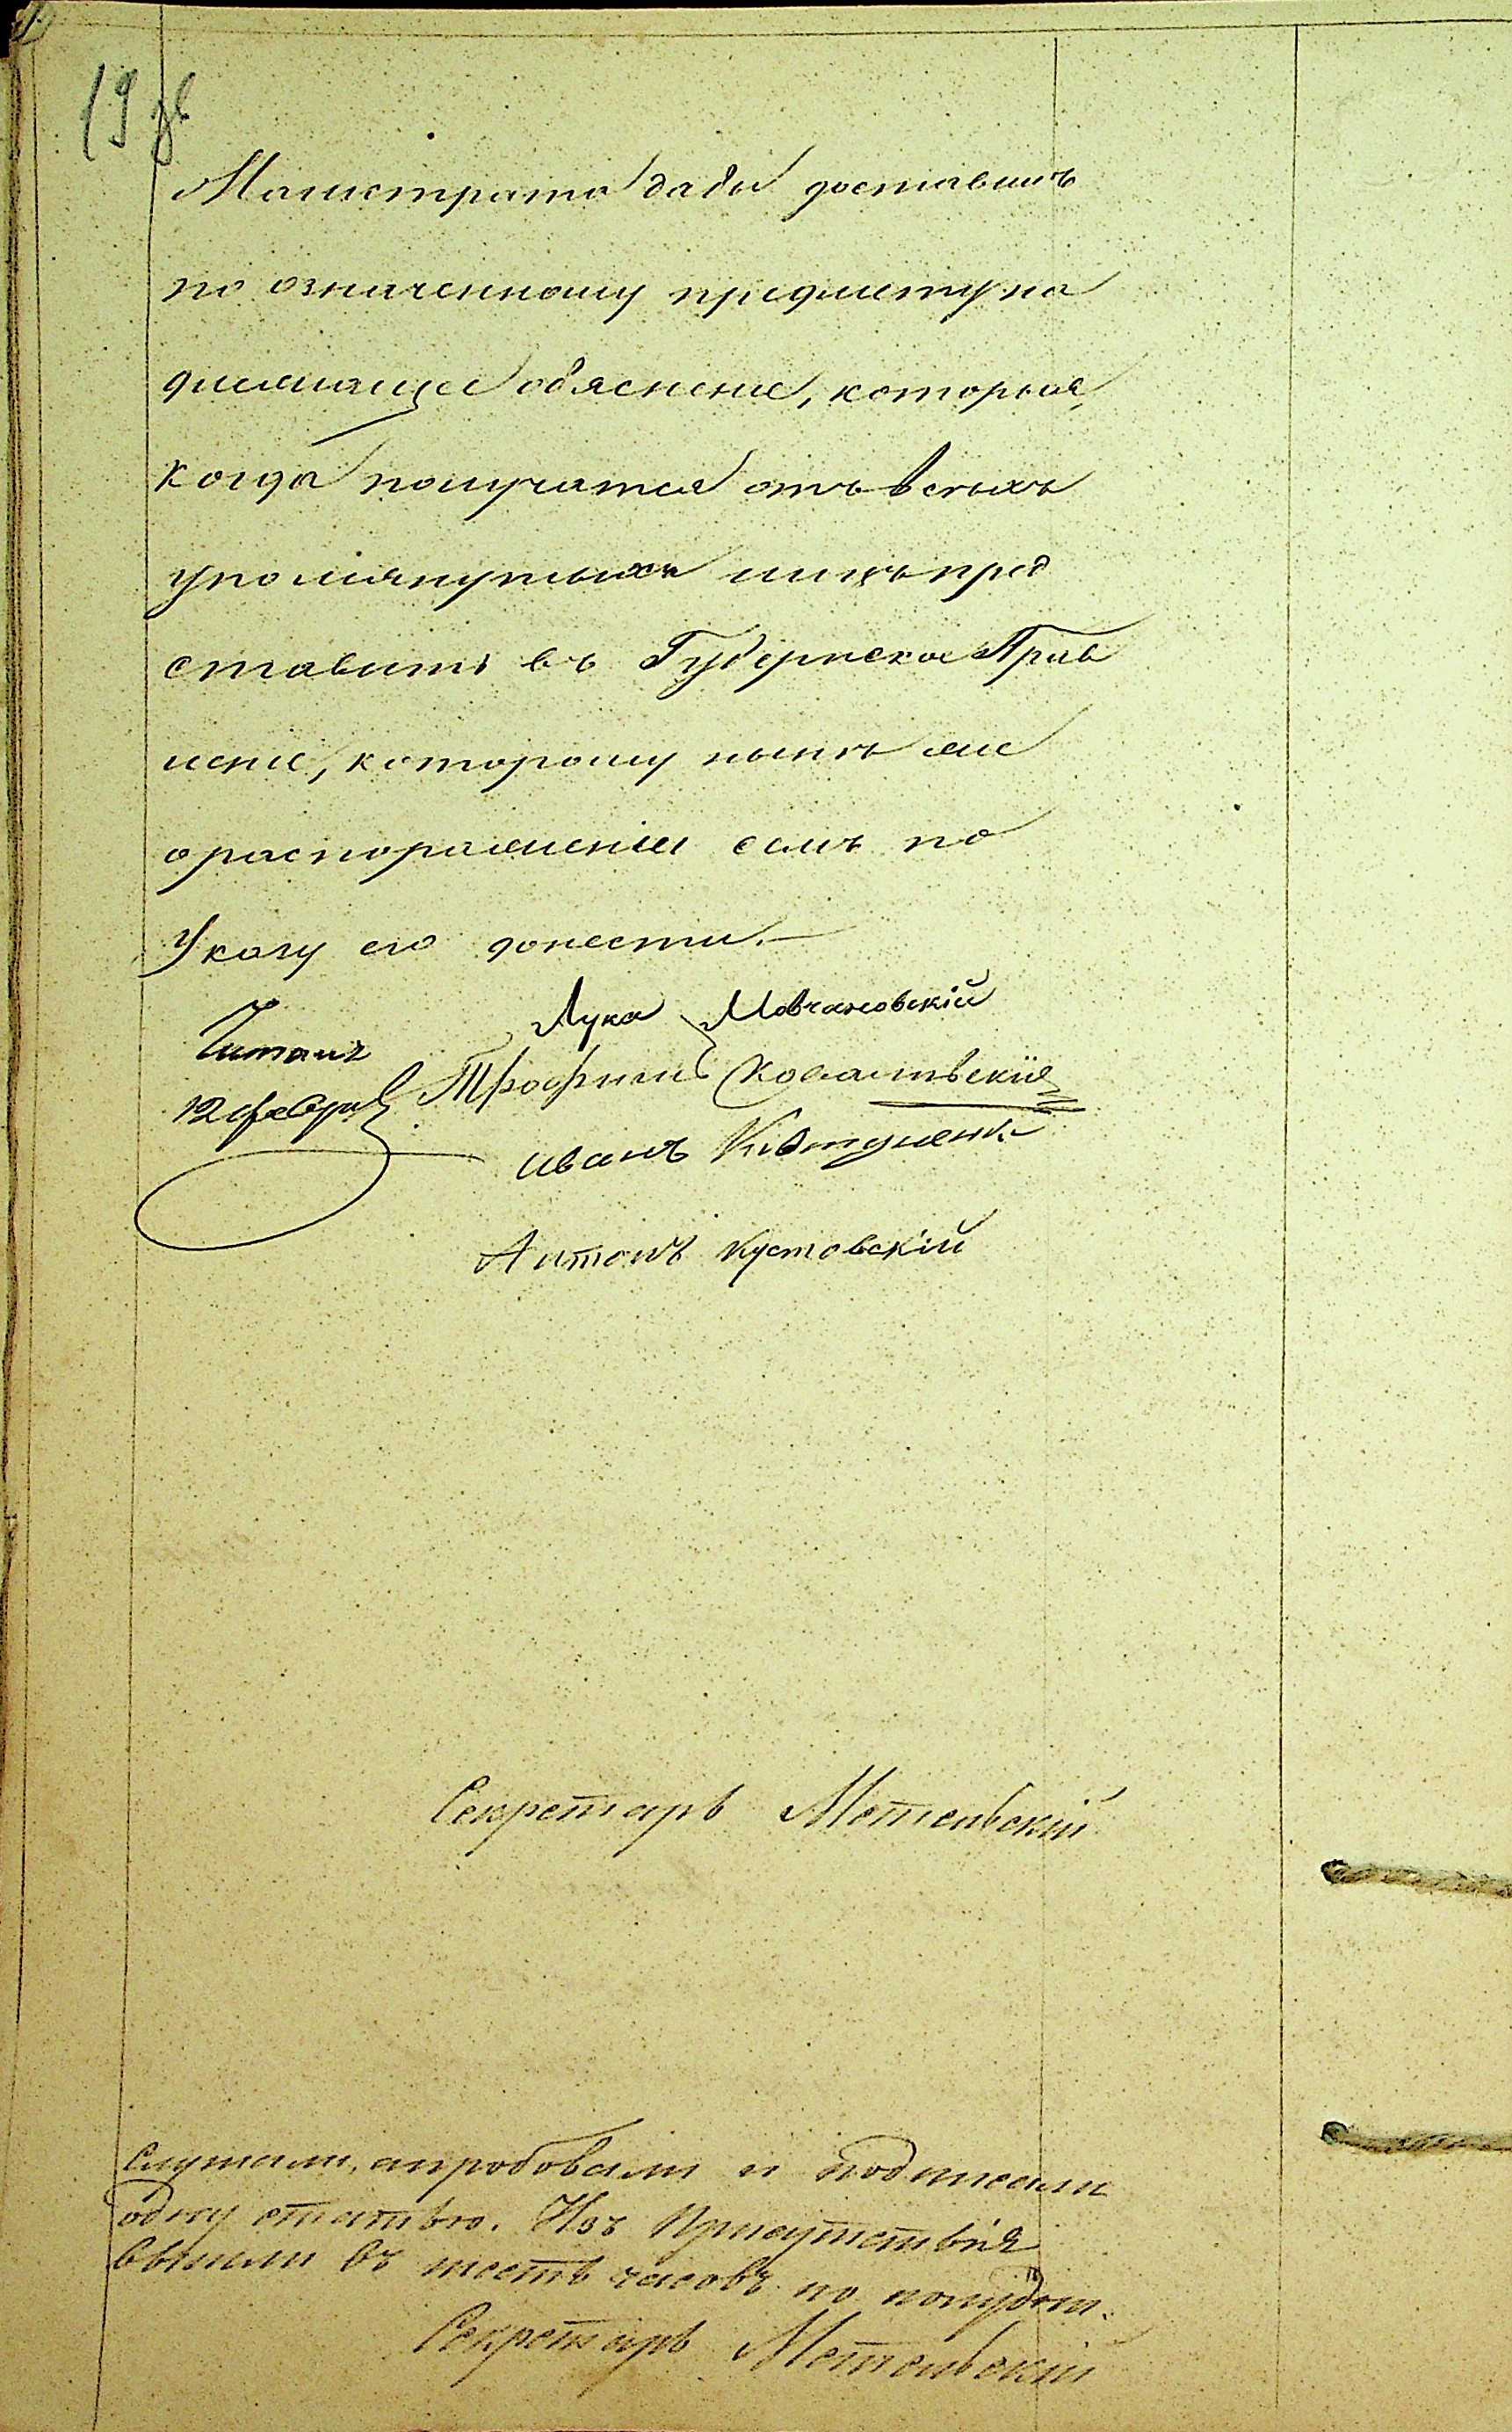 19 зв
Магистрата дабы доставилъ
по означенному предмету на
длежащее обяснение, которые,
когда получатся отъ всѣхъ
упомянутыхъ лицъ пред
ставить въ Губернское Прав
ление, которому нынѣ же
о распоряжении семъ по
Указу его донести.—
Лука Мовчановскій
Читалъ
Трофимъ Ковалевскій
12 февра
иванъ
Антонъ Кустовскій
Секретарь Метельскій
Слушали, апробовали и подписали
одну статью. Изъ Присутствія
вышли въ шесть часовъ по полудни.
Секретарь Метельскій